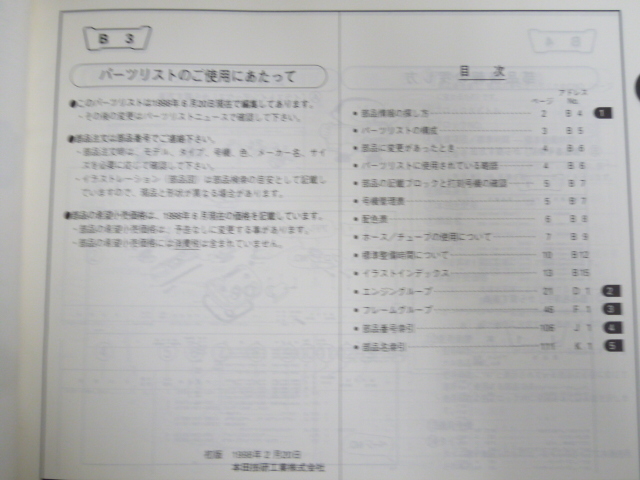 B 3
パーツリストのご使用にあたって
●このパーツリストは1998年6月20日現在で編集してあります。
・その後の変更はパーツリストニュースで確認して下さい。
●部品注文は部品番号でご連絡下さい。
・部品注文時は、モデル、タイプ、号機、色、メーカー名、サイ
ズを必要に応じて確認して下さい。
・イラストレーション(部品図)は部品検索の目安として記載し
ていますので、現品と形状が異なる場合があります。
●部品の希望小売価格は、1998年6月現在の価格を記載しています。
・部品の希望小売価格は、予告なしに変更する事があります。
・部品の希望小売価格には消費税は含まれていません。
初版 1998年2月20日
本田技研工業株式会社
目 次
ページ アドレスNo.
●部品情報の探し方 2 B 4 1
●パーツリストの構成 3 B 5
●部品に変更があったとき 4 B 6
●パーツリストに使用されている略語 4 B 6
●部品の記載ブロックと打刻号機の確認 5 B 7
●号機管理表 5 B 7
●配色表 6 B 8
●ホース/チューブの使用について 7 B 9
●標準整備時間について 10 B12
●イラストインデックス 13 B15
●エンジングループ 21 D 1 2
●フレームグループ 46 F 1 3
●部品番号索引 106 J 1 4
●部品名索引 111 K 1 5